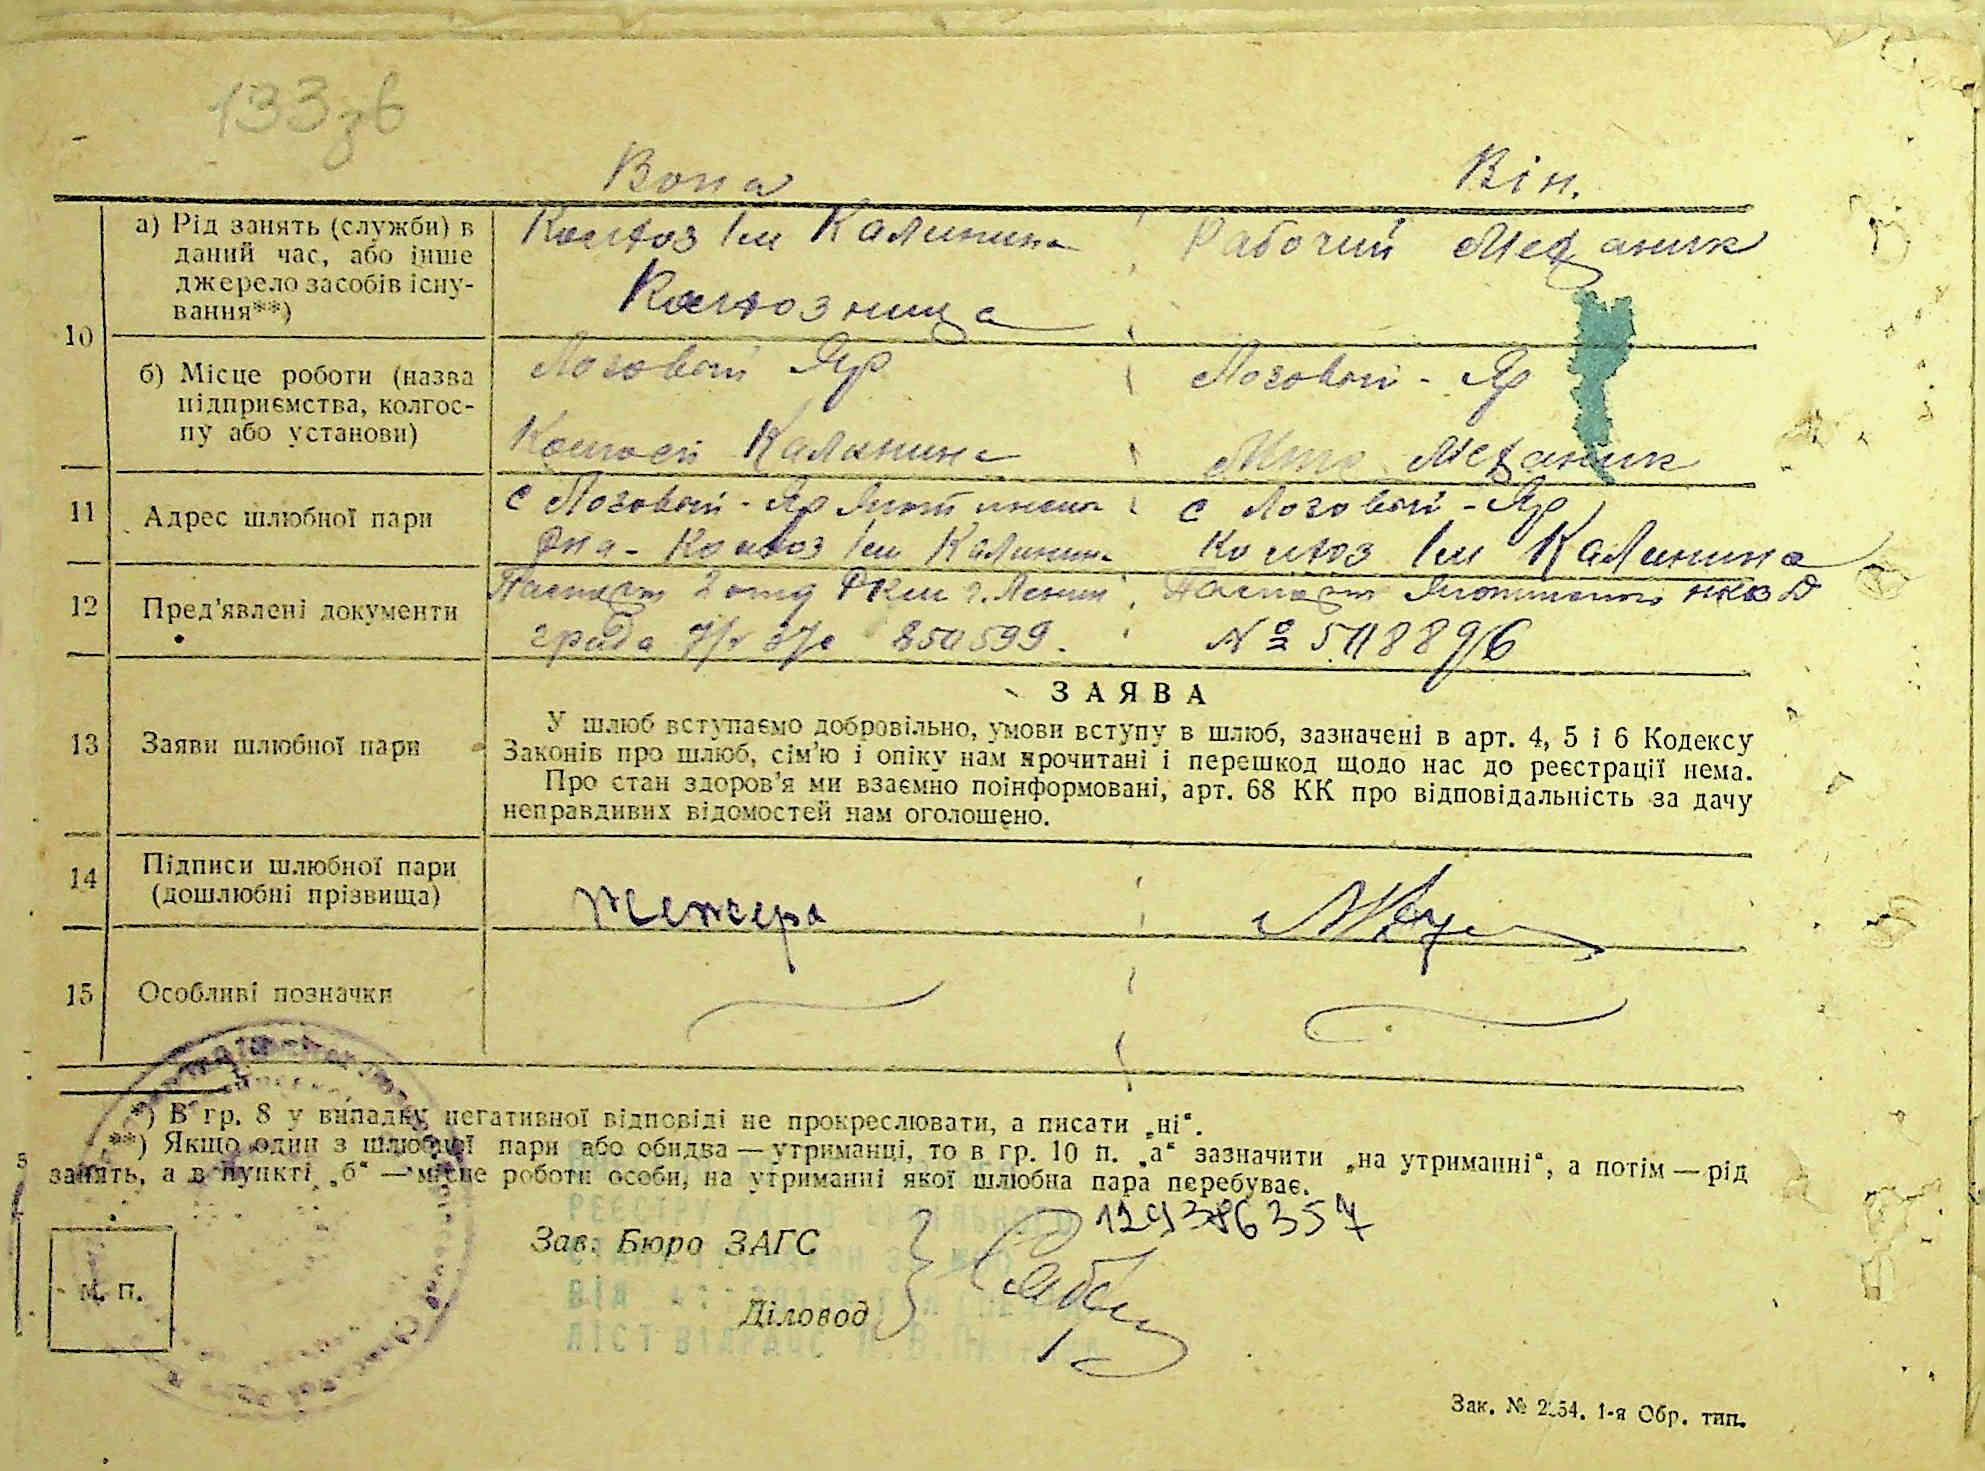 133зв
Вона Він.
10
а) Рід занять (служби) в
даний час, або інше
джерело засобів існу-
вання**)
Колхоз Ім Калинина
Колхозница
Рабочий Механик
б) Місце роботи (назва
підприємства, колгос-
пу або установи)
Лозовой Яр
Калинина
Лозовой - Яр
Механик
11 Адрес шлюбної пари
с Лозовой - Яр
Колхоз Ім Калинина
с Лозовой - Яр
Колхоз Ім Калинина
12 Пред'явлені документи
Паспорт 2 отд РКМ г. Ленин
града 850599.
Паспорт НКВД
№ 5118896
13 Заяви шлюбної пари
ЗАЯВА
У шлюб вступаємо добровільно, умови вступу в шлюб, зазначені в арт. 4, 5 і 6 Кодексу
Законів про шлюб, сім'ю і опіку нам прочитані і перешкод щодо нас до реєстрації нема.
Про стан здоров'я ми взаємно поінформовані, арт. 68 КК про відповідальність за дачу
неправдивих відомостей нам оголошено.
14 Підписи шлюбної пари
(дошлюбні прізвища)
15 Особливі позначки
*) В гр. 8 у випадку негативної відповіді не прокреслювати, а писати „ні“.
**) Якщо один з шлюбної пари або обидва — утриманці, то в гр. 10 п. „а“ зазначити „на утриманні“, а потім — рід
занять, а в пункті „б“ — місце роботи особи, на утриманні якої шлюбна пара перебуває.
129386357
Зав. Бюро ЗАГС
Діловод
М. П.
Зак. № 2254. 1-я Обр. тип.